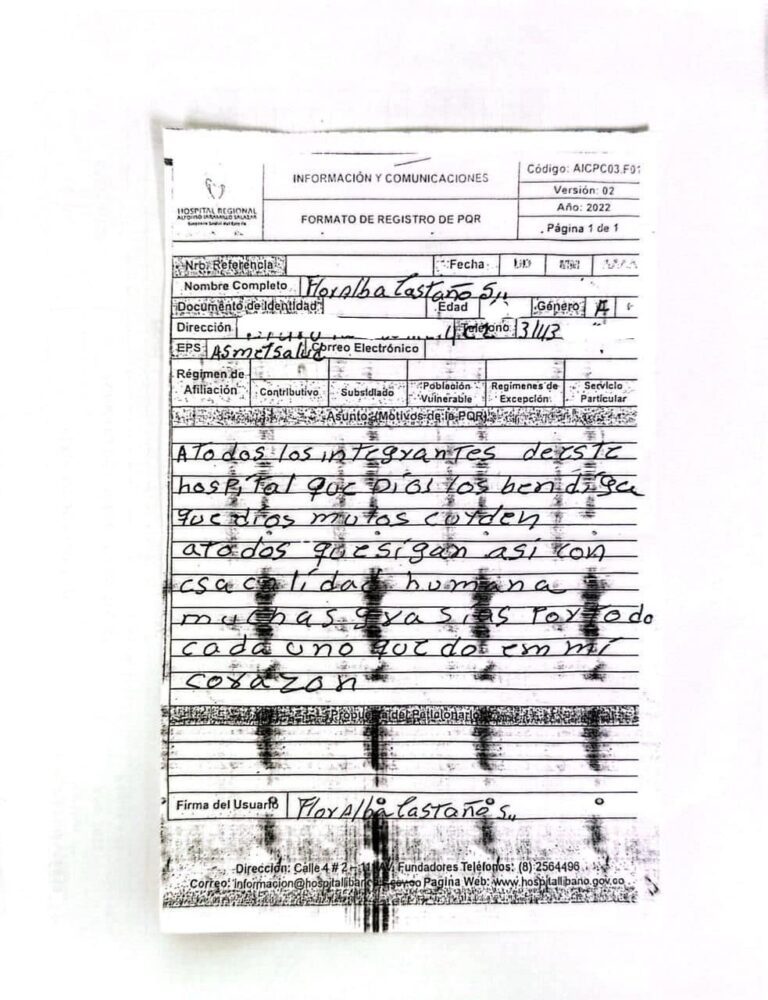 HOSPITAL REGIONAL
ALFONSO JARAMILLO SALAZAR
INFORMACIÓN Y COMUNICACIONES
FORMATO DE REGISTRO DE PQR
Código: AICPC03.F01
Versión: 02
Año: 2022
Página 1 de 1
Nro. Referencia
Fecha
Nombre Completo FlorAlba Castaño S,,
Documento de Identidad Edad Género
Dirección Teléfono
EPS AsmetSalud Correo Electrónico
Régimen de Afiliación Contributivo Subsidiado Población Vulnerable Regimenes de Excepción. Servicio Particular
Asunto (Motivos de la PQR)
ATodos los integrantes deeste
hospital que Dios los bendiga
que dios
atodos quesigan así con
esa calidad humana
muchas grasias Por todo
cada uno quedo em mí
corazon
Propuesta del Peticionario
Firma del Usuario FlorAlba Castaño S,,
Dirección: Calle 4 # 2 - Fundadores Teléfonos: (8) 2564496
Pagina Web: www.hospitallibano.gov.co